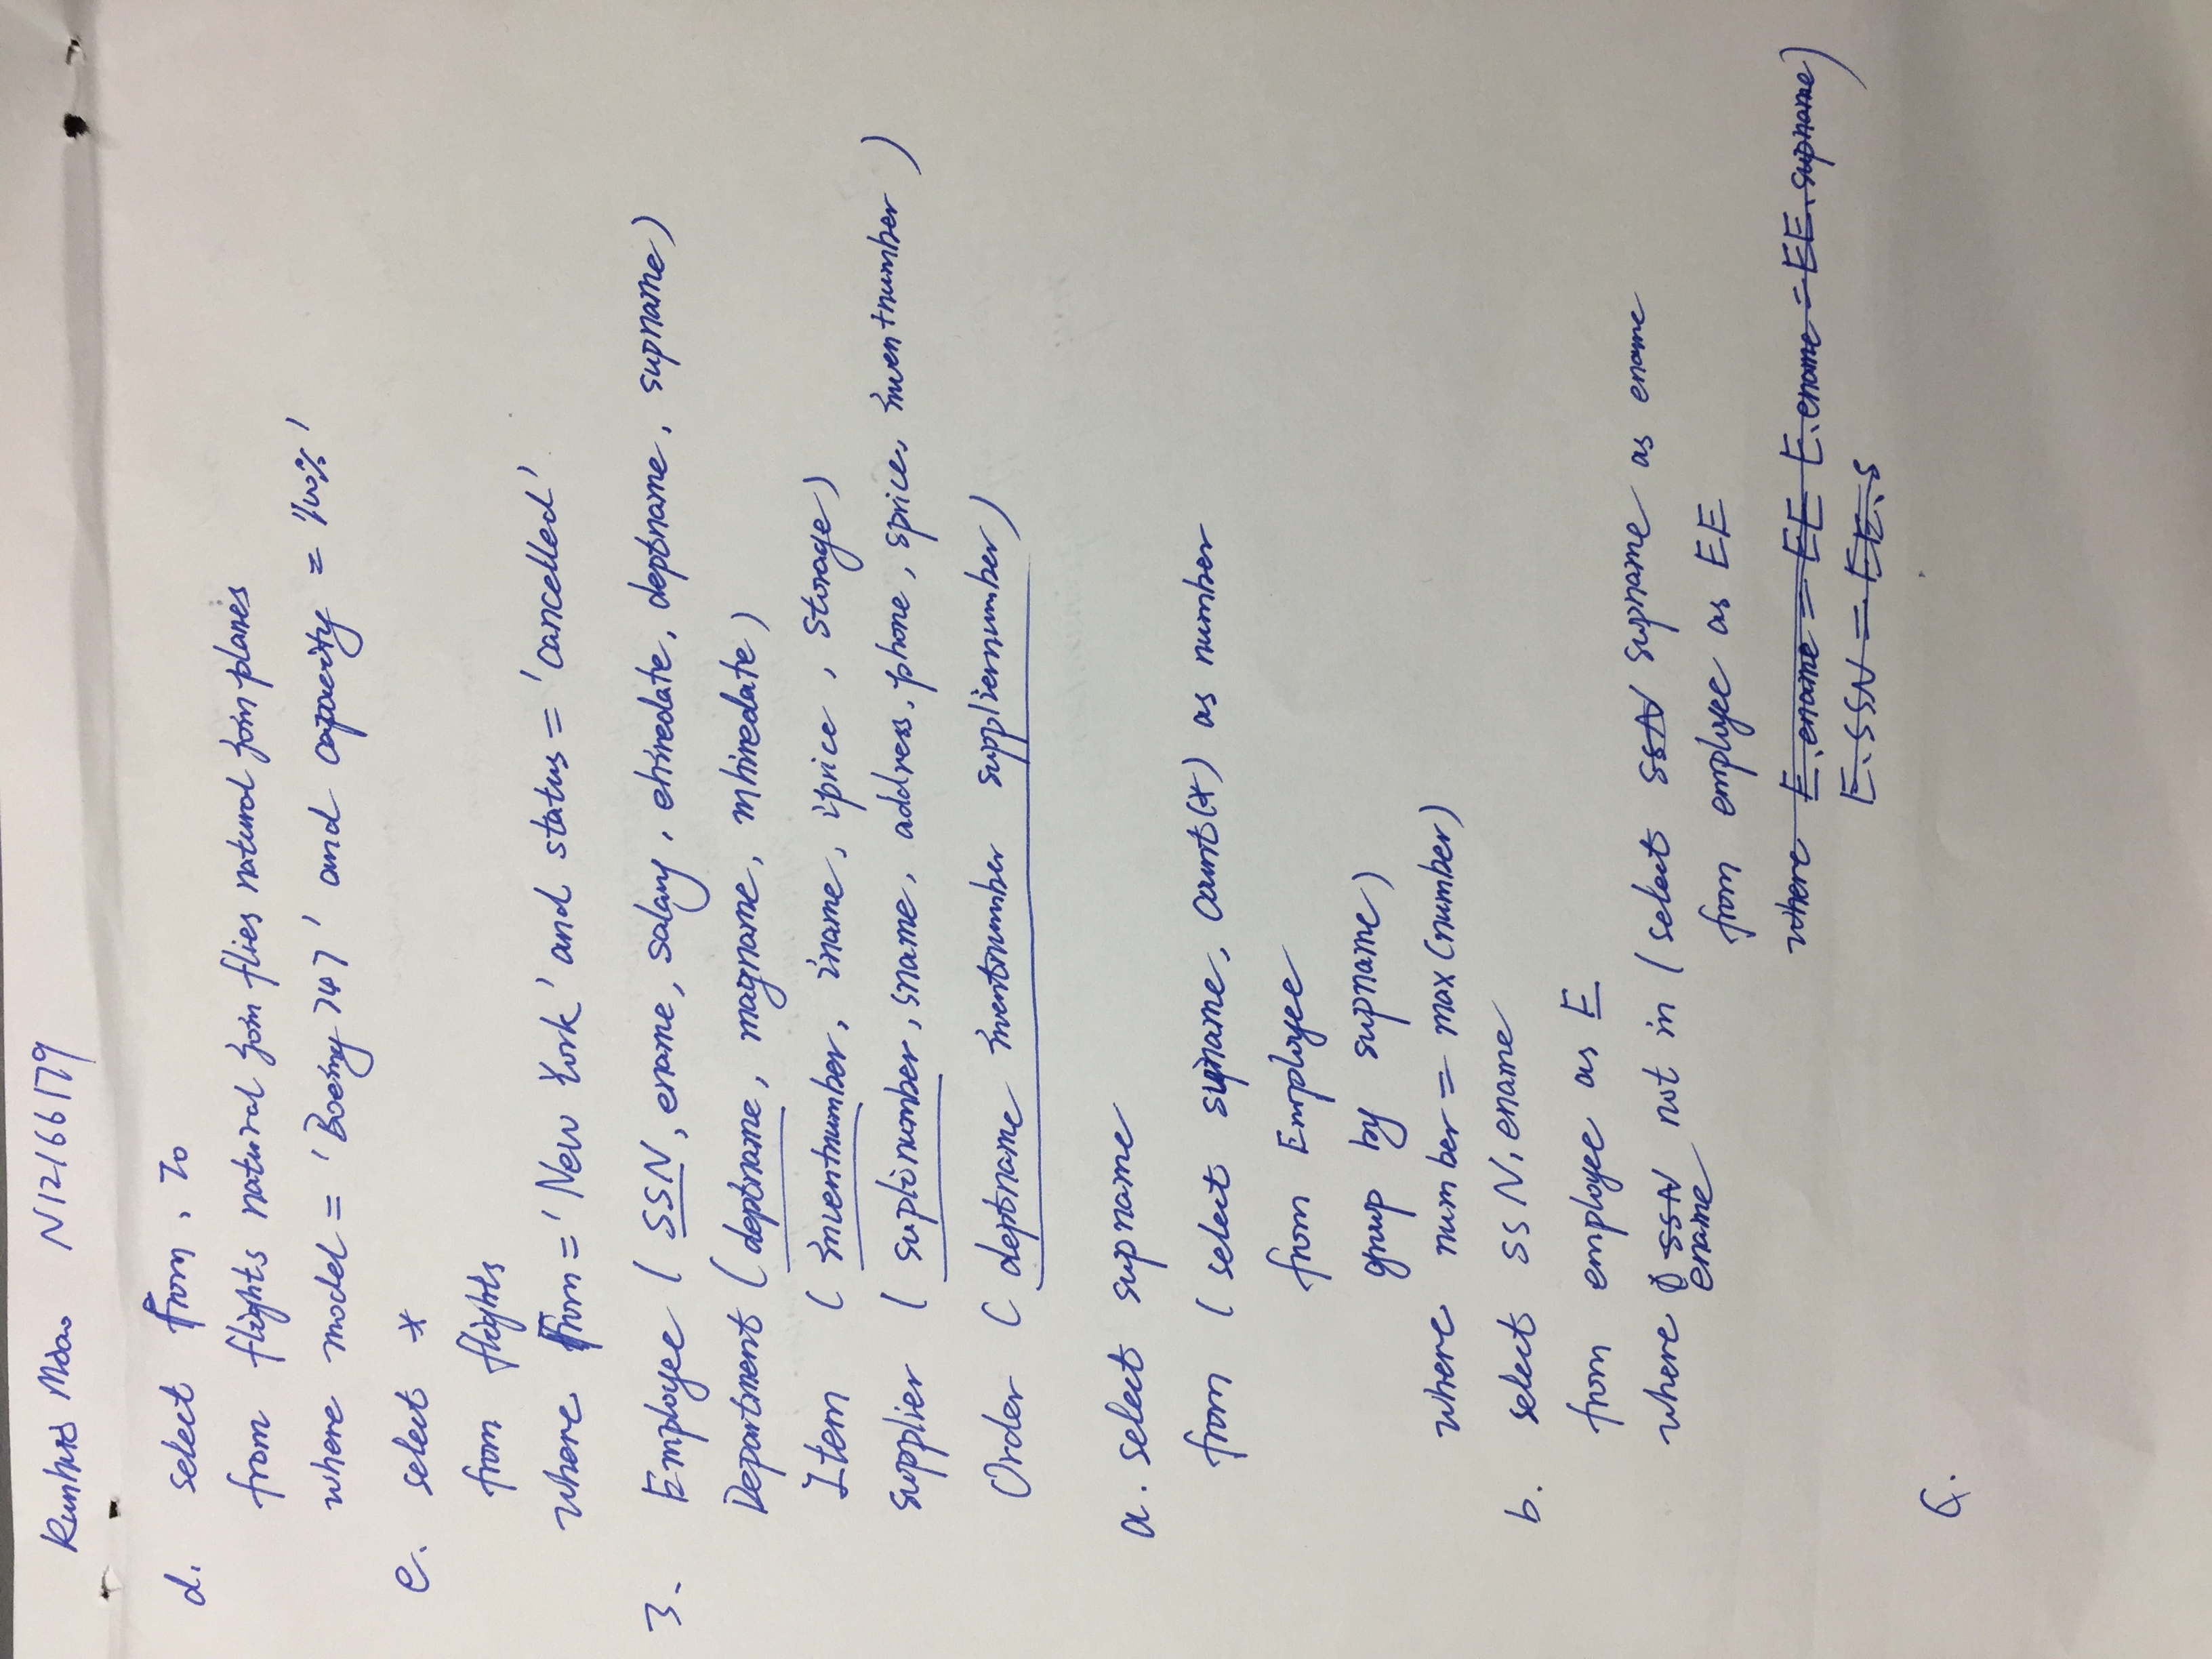 N12166179
d. select From, To
from flights natural join flies natural join planes
where model = 'Boeing 747' and capacity = '100%'
e. select *
from flights
where From = 'New York' and status = 'cancelled'
3. Employee ( SSN, ename, salary, ehiredate, deptname, supname)
Department ( deptname, magname, mhiredate)
Item ( inventnumber, iname, iprice, storage)
supplier ( suplinumber, sname, address, phone, sprice, inventnumber )
Order ( deptname inventnumber suppliernumber)
a. select supname
from ( select supname, count(*) as number
from Employee
group by supname)
where number = max (number)
b. select SSN, ename
from employee as E
where SSN ename not in ( select SSN supname as ename
from employee as EE
where E.ename = EE E.ename = EE.supname)
E.SSN = EE.S